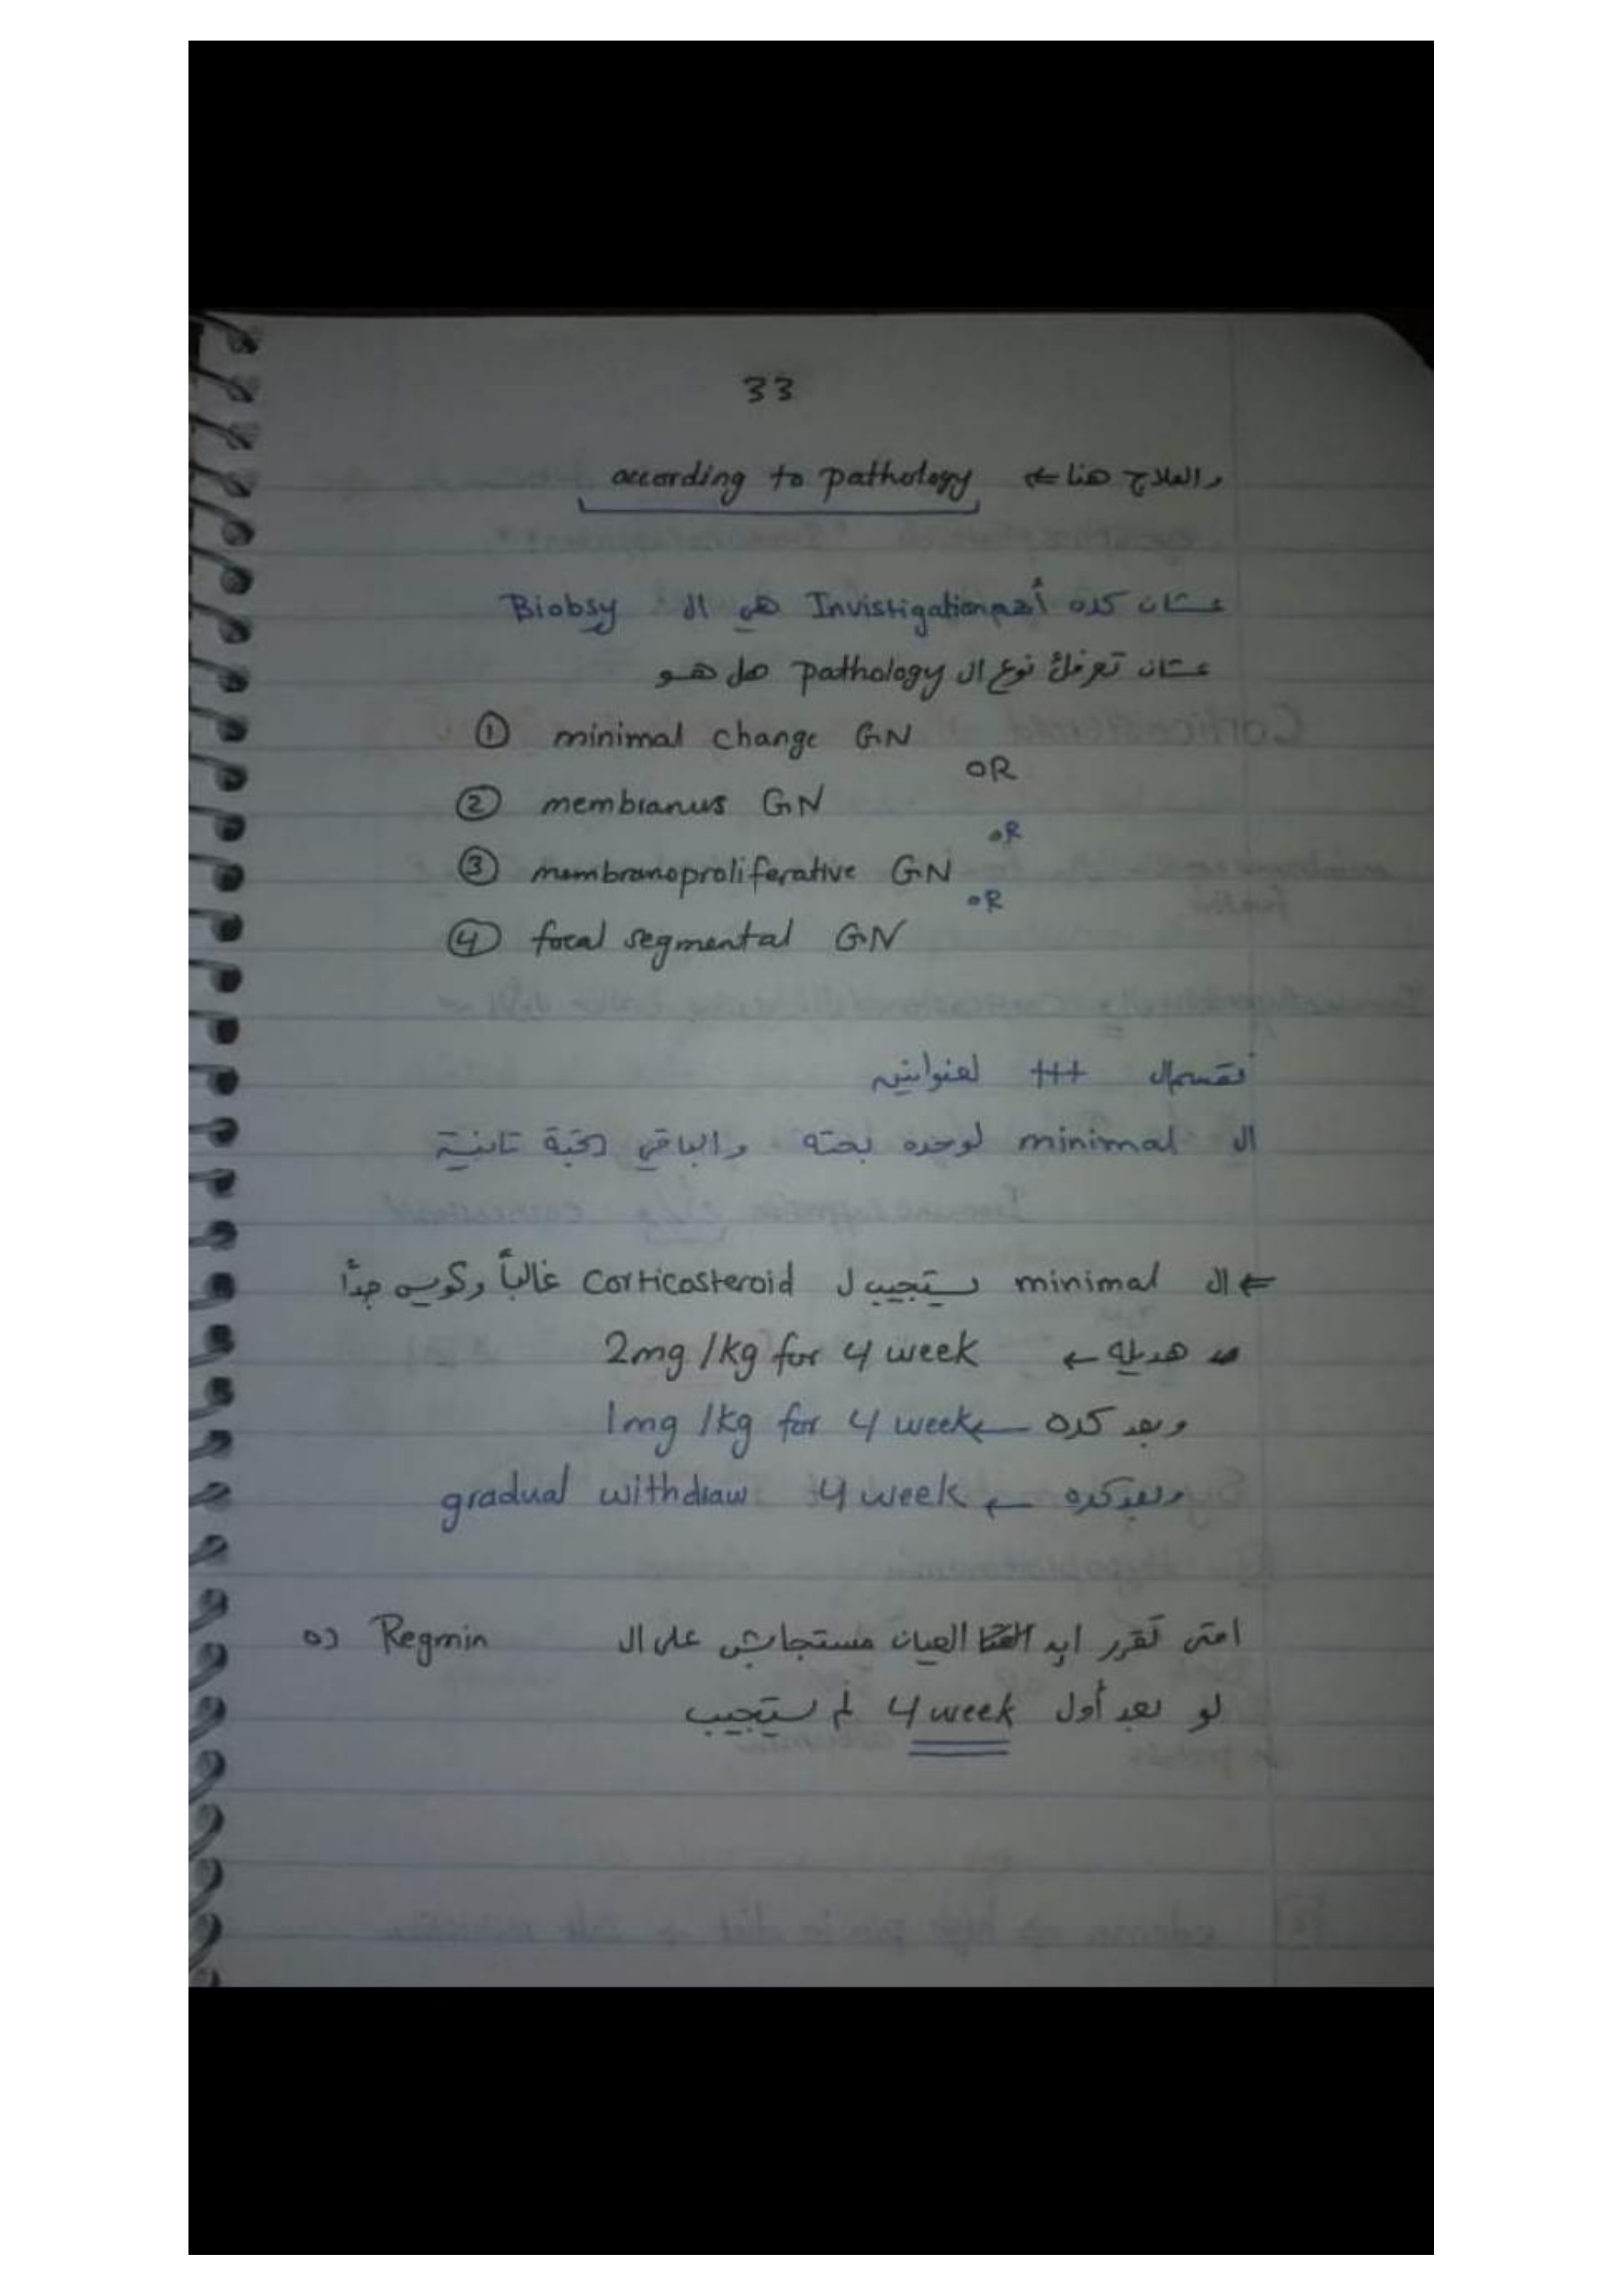 33
والعلاج هنا ⇐ according to pathology
عشان كده أهم Invistigation هي ال Biobsy
عشان تعرفك نوع ال pathology هل هو
① minimal change GN
OR
② membranus GN
oR
③ membranoproliferative GN
oR
④ focal segmental GN
نقسم ال +++ لعنوانين
ال minimal لوحده بحته والباقي حتة تانية
⇐ ال minimal يستجيب ل corticosteroid غالباً وكويس جداً
هديله ← 2mg /kg for 4 week
وبعد كده ← 1mg /kg for 4 week
وبعد كده ← 4 week gradual withdraw
امتى تقرر ايه العيان مستجابش على ال Regmin ده
لو بعد أول 4 week لم يستجيب